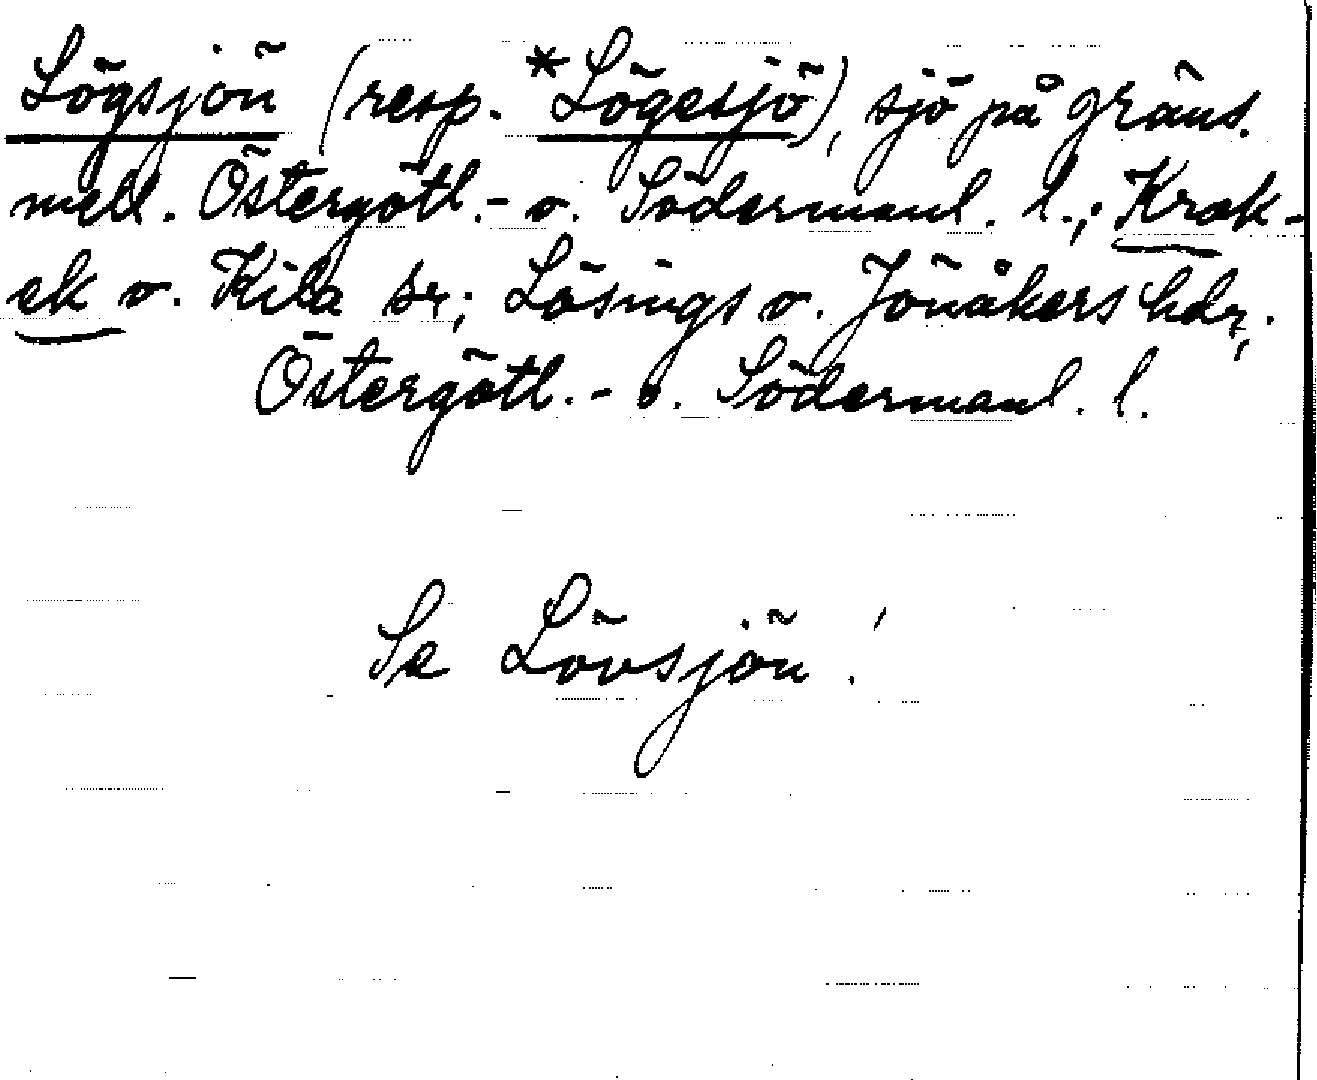 Lögsjön (resp. *Lögesjö), sjö på gräns.
mell. Östergötl.- o. Södermanl. l.; Krok-
ek o. Kila sr; Lösings o. Jönåkers hdr,.
Östergötl.- o. Södermanl. l.
Se Lövsjön!